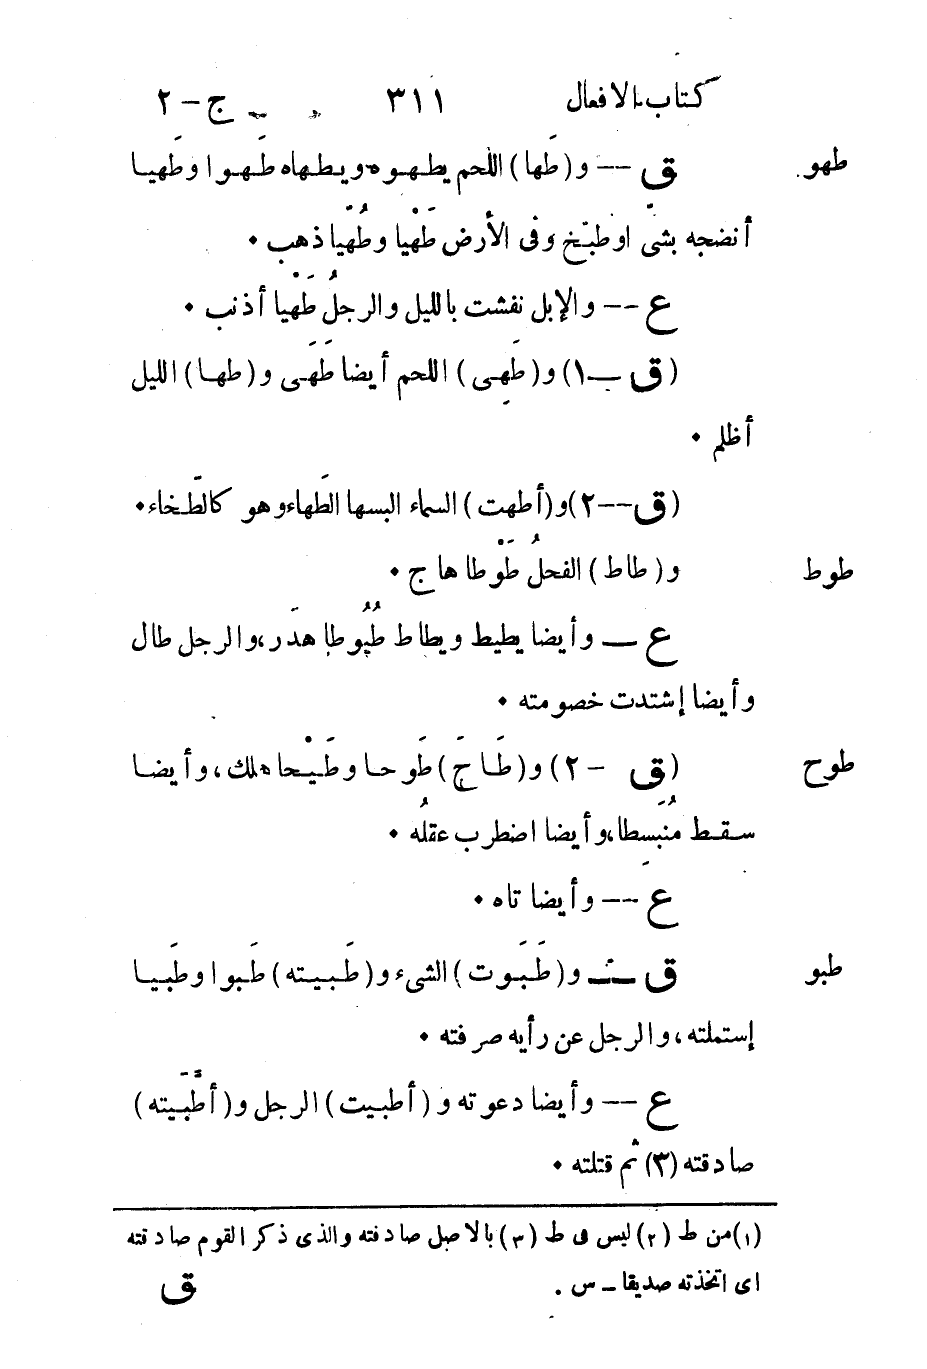 كتاب الافعال ٣١١ ج – ٢
طهو ق –– و (طَها) اللّحم يطهوه ويطهاه طَهوا وطَهيا
أنضجه بشىّ اوطبّخ وفى الأرض طَهْيا وطُهِّيا ذهب •
ع –– والإبل نفشت بالليل والرجلُ طَهْيا أذنب •
(ق –١) و (طَهِى) اللحم أيضا طَهَى و (طها) الليل
أظلم •
(ق ––٢) و (أطهت) السماء البسها الطَهاء وهو كالطّخاء •
طوط و (طاط) الفحلُ طَوْطا هاج •
ع — وأيضا يطيط ويطاط طُيُوطا هدَر، والرجل طال
وأيضا إشتدت خصومته •
طوح (ق – ٢) و (طَاحَ) طَوحا وطَيْحا هلك، وأيضا
سقط مُنبَسِطا، وأيضا اضطرب عقلُه •
ع –– وأيضا تاه •
طبو ق — و (طَبَوت) الشىء و (طَبيته) طَبوا وطَبيا
إستملته، والرجل عن رأيه صرفته •
ع –– وأيضا دعوته و (أطبيت) الرجل و (أطَّبَيته)
صادقته (٣) ثم قتلته •
(١) من ط (٢) ليس فى ط (٣) بالاصل صادفته والذى ذكر القوم صادقته
اى اتخذته صديقا ــ س .
ق